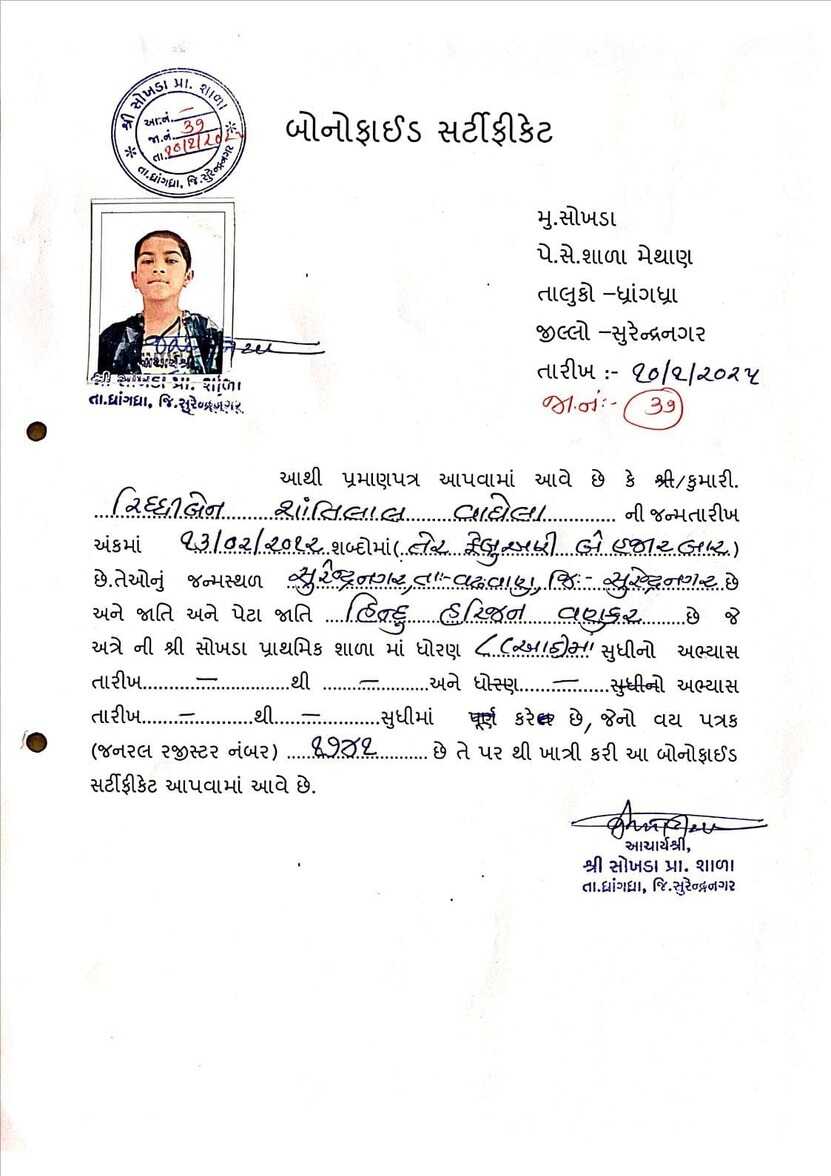 શ્રી સોખડા પ્રા. શાળા
આ.નં. —
જા.નં. 39
તા.
તા.ધ્રાંગધ્રા, જિ.સુરેન્દ્રનગર
બોનોફાઈડ સર્ટીફીકેટ
મુ.સોખડા
પે.સે.શાળા મેથાણ
તાલુકો –ધ્રાંગધ્રા
જીલ્લો –સુરેન્દ્રનગર
તારીખ :- ૧૦/૧/૨૦૨૫
જા.નં:- 39
આચાર્યશ્રી
શ્રી સોખડા પ્રા. શાળા
તા.ધ્રાંગધ્રા, જિ.સુરેન્દ્રનગર
આથી પ્રમાણપત્ર આપવામાં આવે છે કે શ્રી/કુમારી.
રિધ્ધીબેન શાંતિલાલ વાઘેલા ની જન્મતારીખ
અંકમાં ૧૩/૦૨/૨૦૧૨ શબ્દોમાં(તેર ફેબ્રુઆરી બે હજાર બાર)
છે.તેઓનું જન્મસ્થળ સુરેન્દ્રનગર,તા:-વઢવાણ, જિ:- સુરેન્દ્રનગર છે
અને જાતિ અને પેટા જાતિ હિન્દુ હરિજન વણકર છે જે
અત્રે ની શ્રી સોખડા પ્રાથમિક શાળા માં ધોરણ ૮(આઠ)માં સુધીનો અભ્યાસ
તારીખ......—......થી ......—......અને ધોરણ......—......સુધીનો અભ્યાસ
તારીખ......—......થી......—......સુધીમાં પૂર્ણ કરેલ છે, જેનો વય પત્રક
(જનરલ રજીસ્ટર નંબર) ૧૭૪૧ છે તે પર થી ખાત્રી કરી આ બોનોફાઈડ
સર્ટીફીકેટ આપવામાં આવે છે.
આચાર્યશ્રી,
શ્રી સોખડા પ્રા. શાળા
તા.ધ્રાંગધ્રા, જિ.સુરેન્દ્રનગર